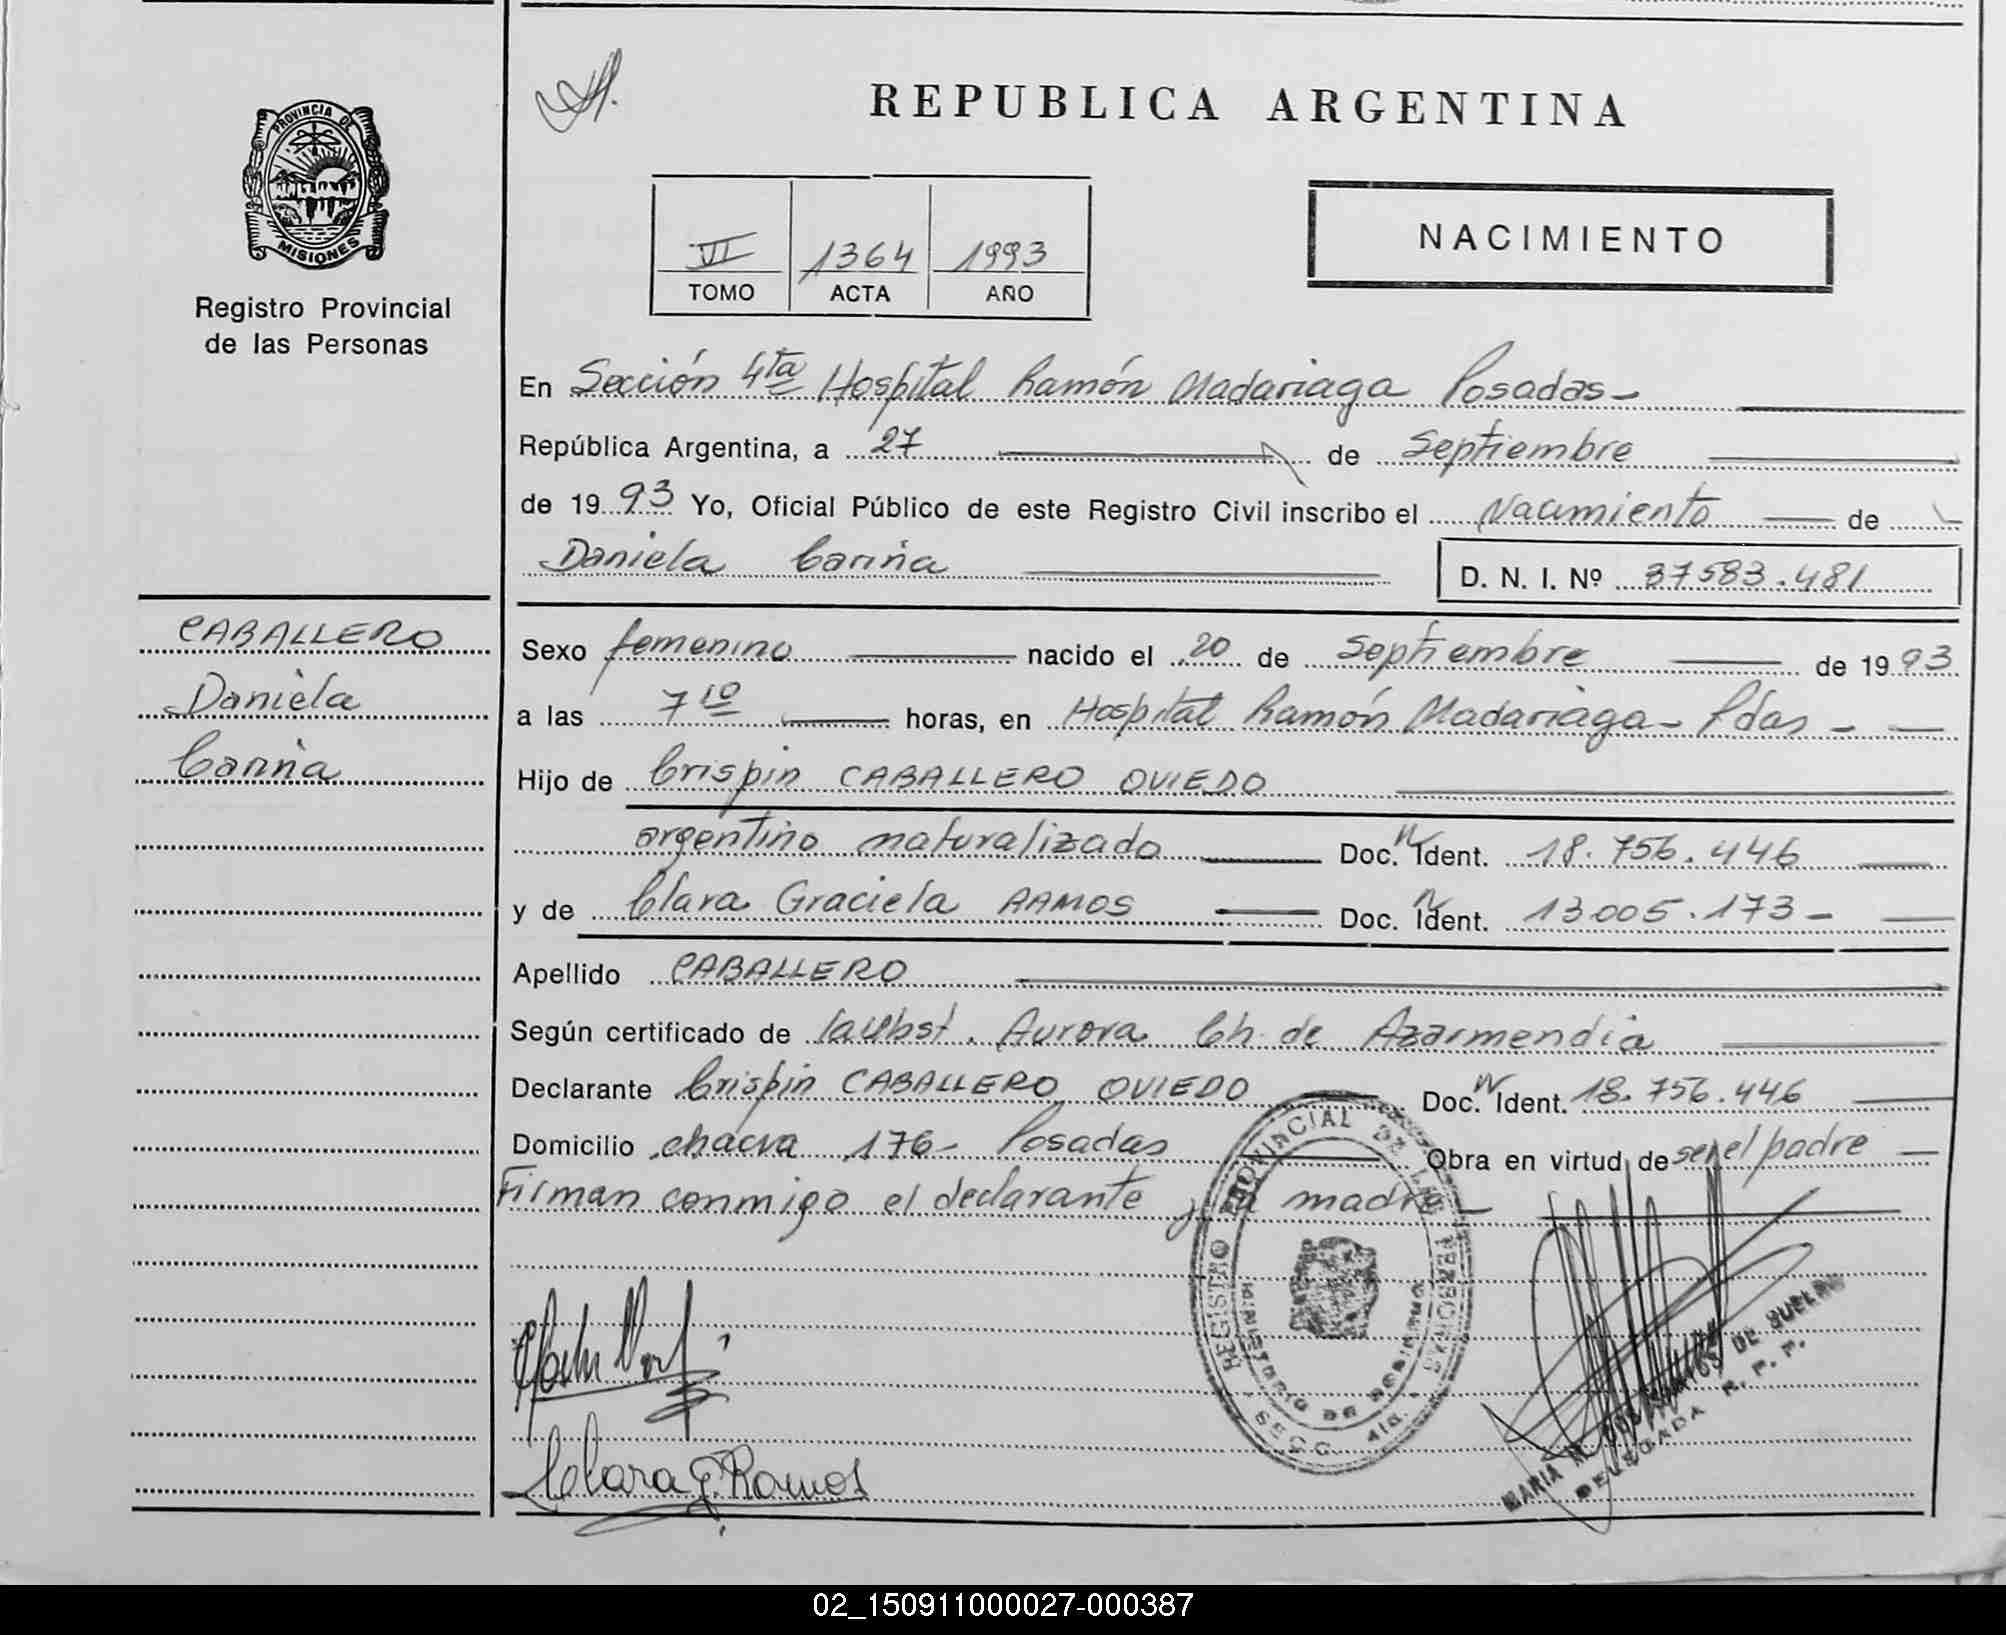 PROVINCIA DE
MISIONES
Registro Provincial
de las Personas
CABALLERO
Daniela
Carina
REPUBLICA ARGENTINA
VI 1364 1993
TOMO ACTA AÑO
NACIMIENTO
En Sección 4ta Hospital Ramón Madariaga Posadas-
República Argentina, a 27 de Septiembre
de 1993 Yo, Oficial Público de este Registro Civil inscribo el Nacimiento de
Daniela Carina D. N. I. Nº 37583.481
Sexo femenino nacido el 20 de Septiembre de 1993
a las 7 10 horas, en Hospital Ramón Madariaga - Pdas -
Hijo de Crispin CABALLERO OVIEDO
argentino naturalizado Doc. Ident. 18.756.446
y de Clara Graciela RAMOS Doc. Ident. 13005.173-
Apellido CABALLERO
Según certificado de Aurora Ch. de Azarmendia
Declarante Crispin CABALLERO OVIEDO Doc. Ident. 18.756.446
Domicilio chacra 176- Posadas Obra en virtud de ser el padre
Firman conmigo el declarante y la madre -
REGISTRO PROVINCIAL DE LAS PERSONAS
MINISTERIO DE GOBIERNO
SECC. 4ta.
Clara G. Ramos
MARIA DE SUELDO
DELEGADA R. P. P.
02_150911000027-000387